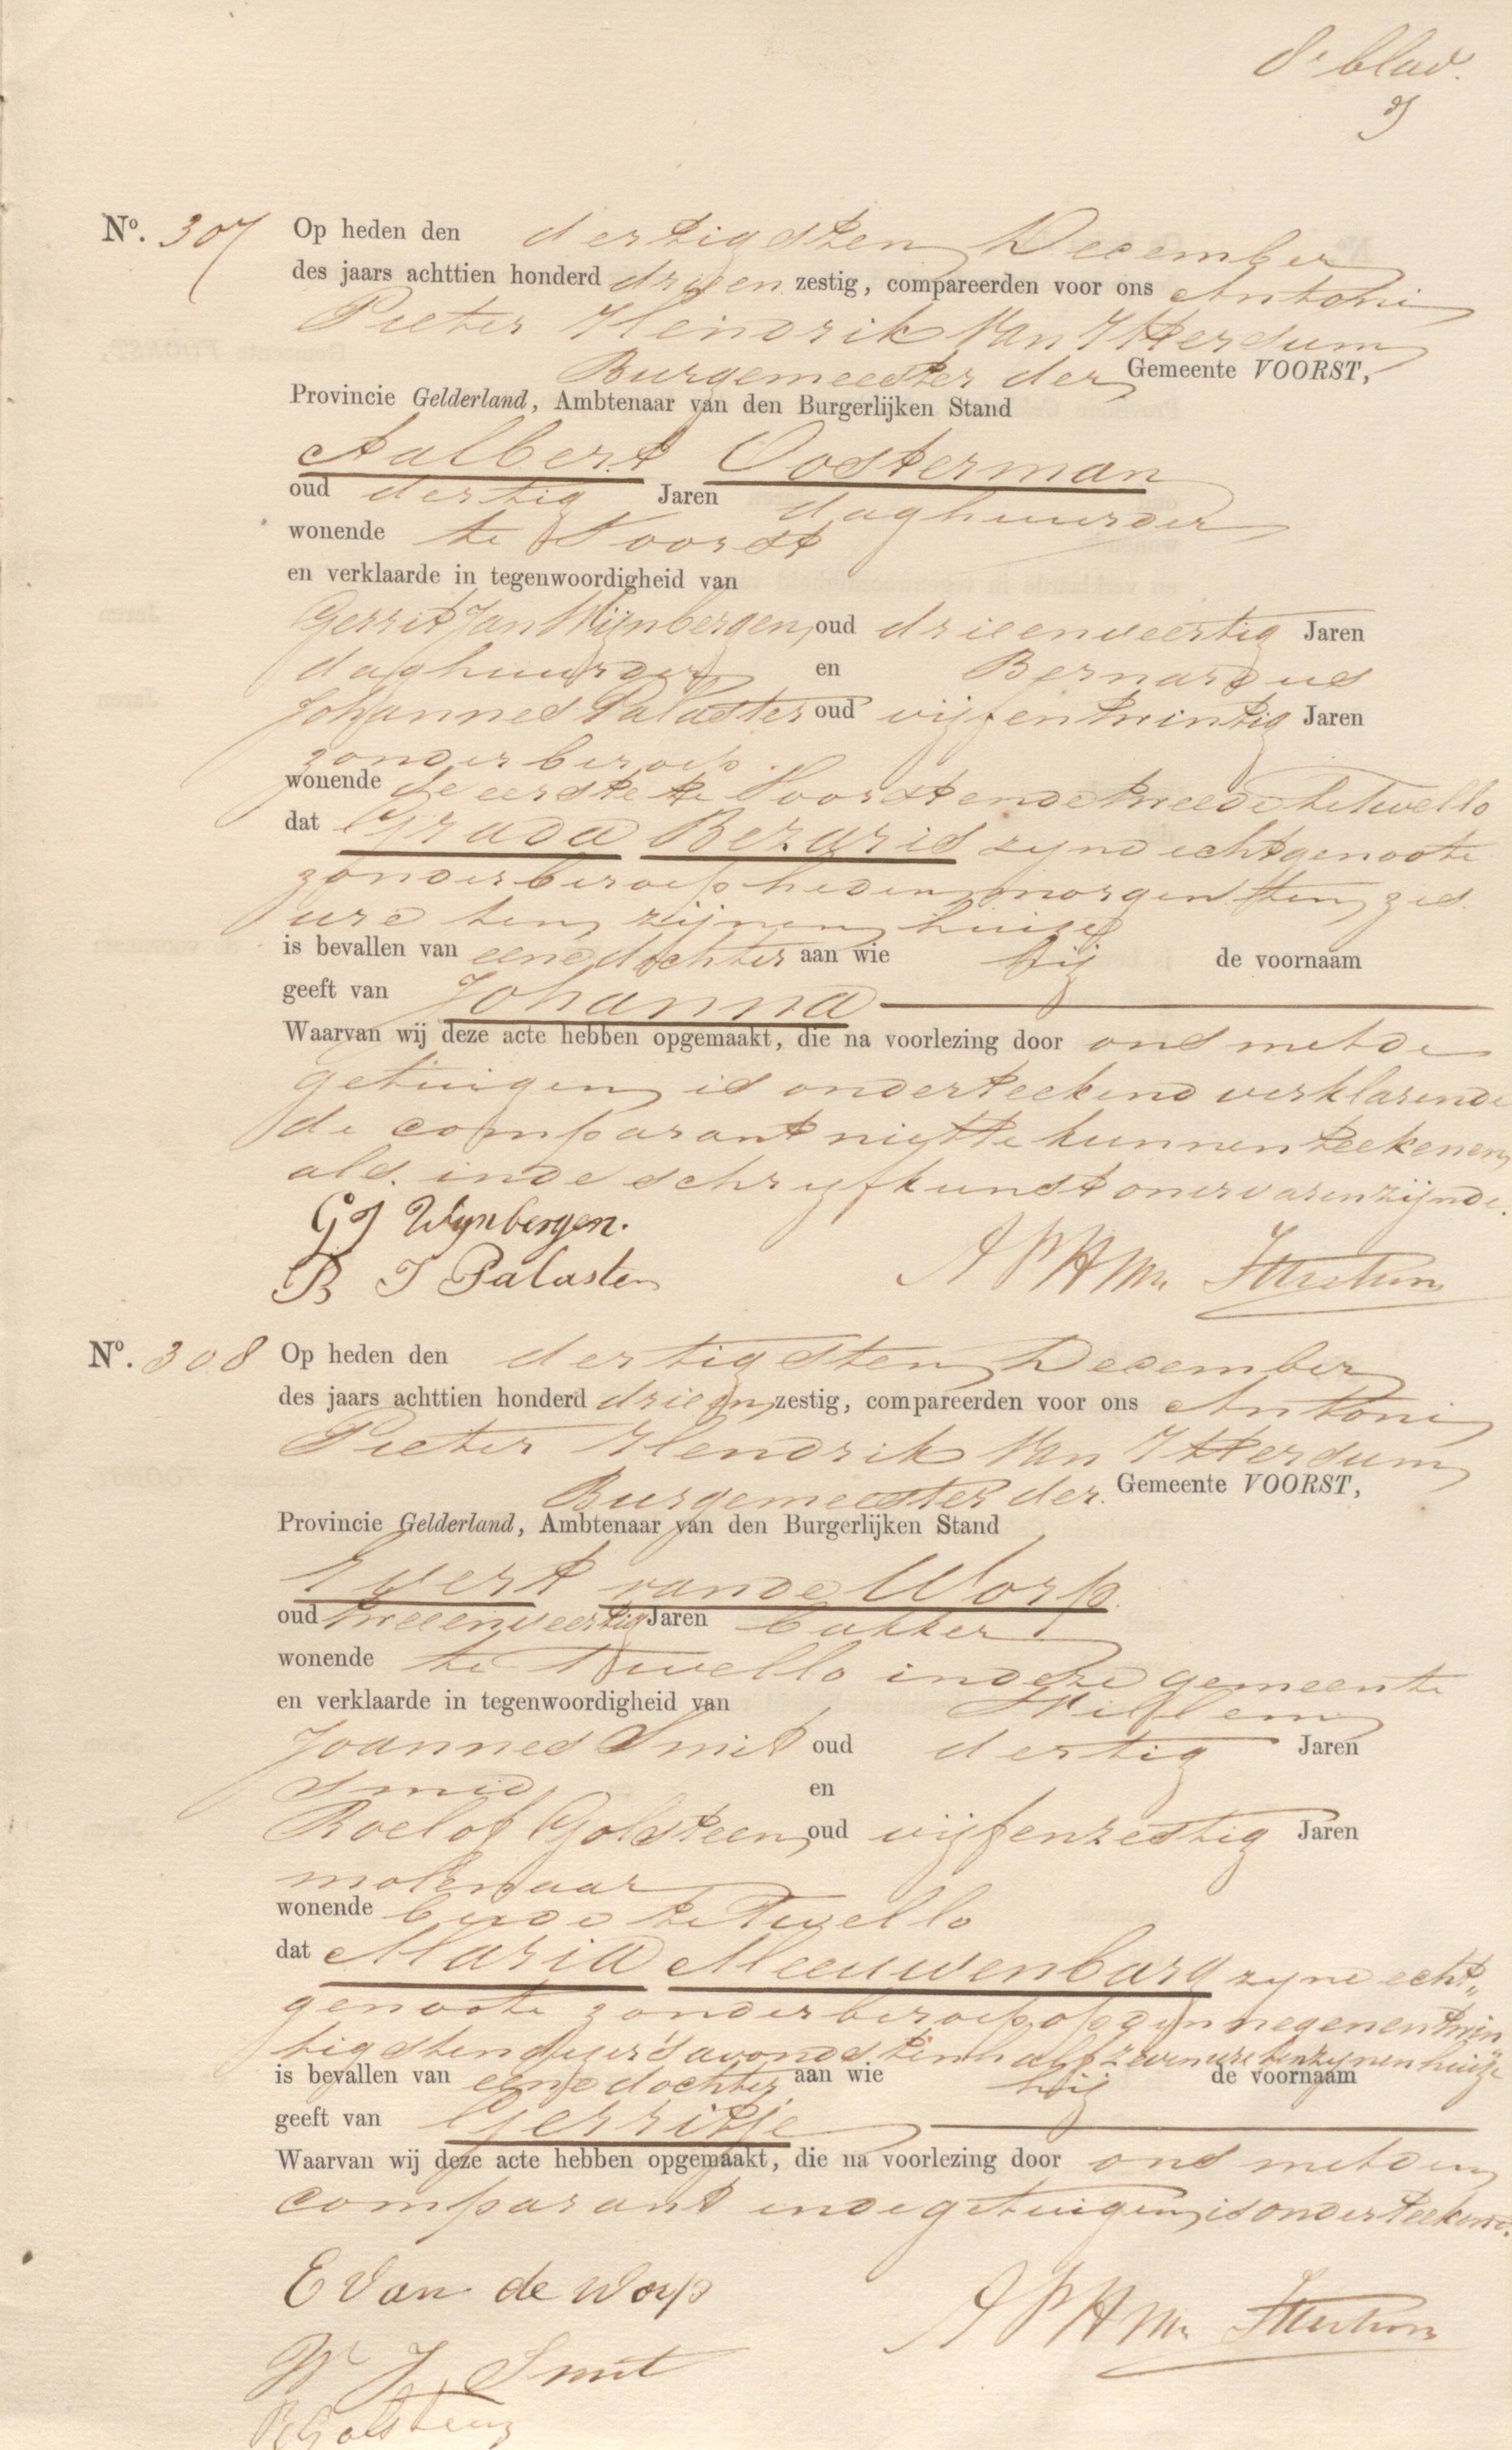 8e blad.
N°. 307 Op heden den dertigsten December
des jaars achttien honderd drieen zestig, compareerden voor ons Antoni
Pieter Hendrik van Itterdum
Burgemeester der Gemeente VOORST,
Provincie Gelderland, Ambtenaar van den Burgerlijken Stand
Aalbert Oosterman
oud dertig Jaren daghuurder
wonende te Voorst
en verklaarde in tegenwoordigheid van
Gerrit Jan Wijnbergen, oud drieenveertig Jaren
daghuurder en Bernardus
Johannes Palaster oud vijfentwintig Jaren
zonder beroep.
wonende de eerste te Voorst en de tweede te Twello
dat Grada Bezaris zijne echtgenoote
zonder beroep heden morgen ten zes
ure ten zijnen huize
is bevallen van eene dochter aan wie hij de voornaam
geeft van Johanna
Waarvan wij deze acte hebben opgemaakt, die na voorlezing door ons met de
getuigen is onderteekend verklarende
de comparant niet te kunnen teekenen
als in de schrijfkunst onervaren zijnde.
GJ Wijnbergen.
B J Palaster
APH van Itterdum
N°. 308 Op heden den dertigsten December
des jaars achttien honderd drieen zestig, compareerden voor ons Antoni
Pieter Hendrik van Itterdum
Burgemeester der Gemeente VOORST,
Provincie Gelderland, Ambtenaar van den Burgerlijken Stand
Evert van de Worp
oud tweeenveertig Jaren bakker
wonende te Twello in deze gemeente
en verklaarde in tegenwoordigheid van Willem
Joannes Smit oud dertig Jaren
smid en
Roelof Golsteen, oud vijfenzestig Jaren
molenaar
wonende beide te Twello
dat Maria Meeuwenbarg zijne echt„
genoote zonder beroep op den negenentwin
tigsten dezer 's avonds ten half zeven ure ten zijnen huize
is bevallen van eene dochter aan wie hij de voornaam
geeft van Gerritje
Waarvan wij deze acte hebben opgemaakt, die na voorlezing door ons met den
comparant en de getuigen is onderteekend.
E Van de Worp
APH van Itterdum
W J Smit
R Golsteen